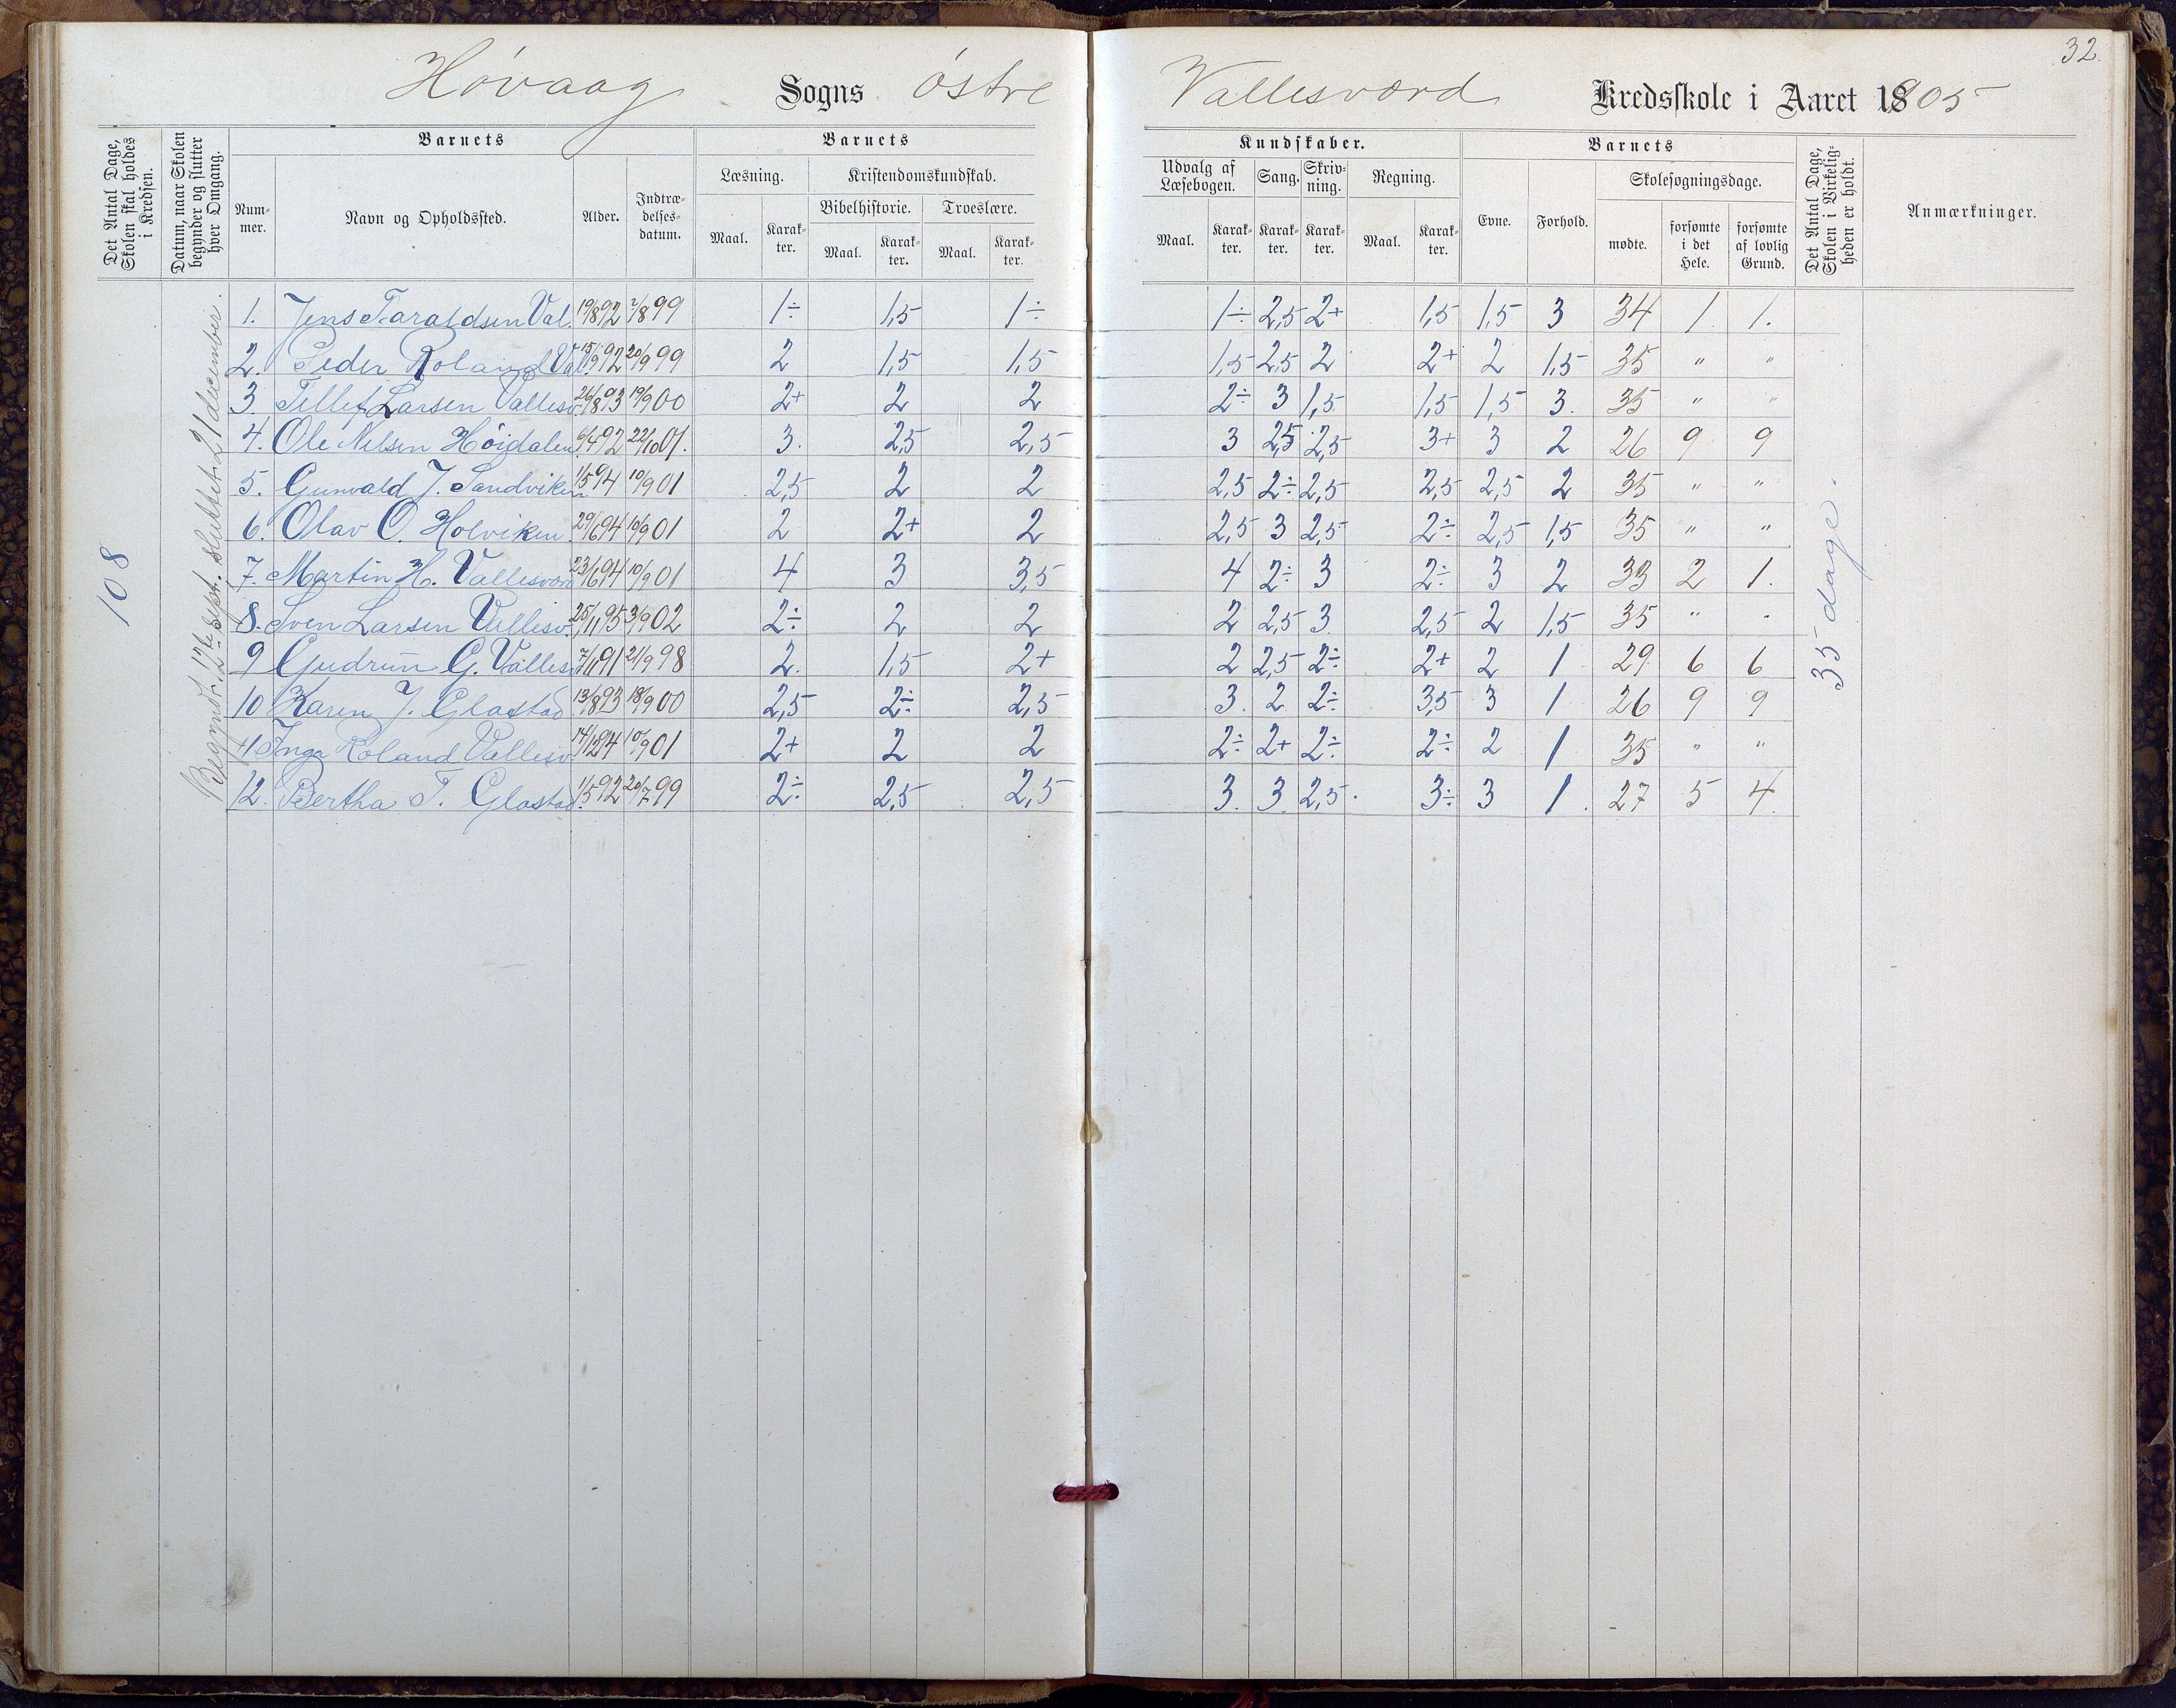 32.
Høvaag Sogns østre Vallesværd Kredsskole i Aaret 1905
Det Antal Dage, Skolen skal holdes i Kredsen.
Datum, naar Skolen begynder og slutter hver Omgang.
Barnets
Barnets
Kundskaber.
Barnets
Det Antal Dage, Skolen i Virkeligheden er holdt.
Anmærkninger.
Nummer.
Navn og Opholdssted.
Alder.
Indtrædelsesdatum.
Læsning.
Kristendomskundskab.
Udvalg af Læsebogen.
Sang.
Skrivning.
Regning.
Evne.
Forhold.
Skolesøgningsdage.
Bibelhistorie.
Troeslære.
Maal. Karakter. Maal. Karakter. Maal. Karakter. Maal. Karakter. Karakter. Karakter. Maal. Karakter. mødte. forsømte i det Hele. forsømte af lovlig Grund.
108
Begynt 12te sept. sluttet 21 december.
1. Jens Taraldsen Val. 19/8 92 7/8 99 1÷ 1,5 1÷ 1÷ 2,5 2+ 1,5 1,5 3 34 1. 1.
2. Peder Roland Val. 15/9 92 20/9 99 2 1,5 1,5 1,5 2,5 2 2+ 2 1,5 35 " "
3. Tellef Larsen Vallesv. 26/8 93 19/9 00 2+ 2 2 2÷ 3 1,5 1,5 1,5 3. 35 " "
4. Ole Nilsen Höigdalen 6/4 92 22/10 01. 3. 2,5 2,5 3 2,5 2,5 3+ 3 2 26 9 9
5. Gunvald J. Sandviken 1/5 94 10/9 01 2,5 2 2 2,5 2÷ 2,5 2,5 2,5 2 35 " "
6. Olav O. Holviken 29/6 94 10/9 01 2 2+ 2 2,5 3 2,5 2÷ 2,5 1,5 35 " "
7. Martin H. Vallesværd 23/6 94 10/9 01 4 3 3,5 4 2÷ 3 2÷ 3 2 33 2 1.
8. Sven Larsen Vallesv. 25/11 95 3/9 02 2÷ 2 2 2 2,5 3. 2,5 2 1,5 35 " "
9 Gudrun G. Vallesv 7/11 91 21/9 98 2. 1,5 2+ 2 2,5 2÷ 2+ 2 1 29 6 6
10 Karen J. Glastad 13/8 93 18/9 00 2,5 2÷ 2,5 3. 2 2÷ 3,5 3 1 26 9 9
11 Inga Roland Vallesv. 14/12 94 10/9 01 2+ 2 2 2÷ 2+ 2÷ 2÷ 2 1 35 " "
12. Bertha T. Glastad. 1/5 92 20/7 99 2÷ 2,5 2,5 3. 3. 2,5. 3÷ 3 1. 27 5 4.
35 dage.